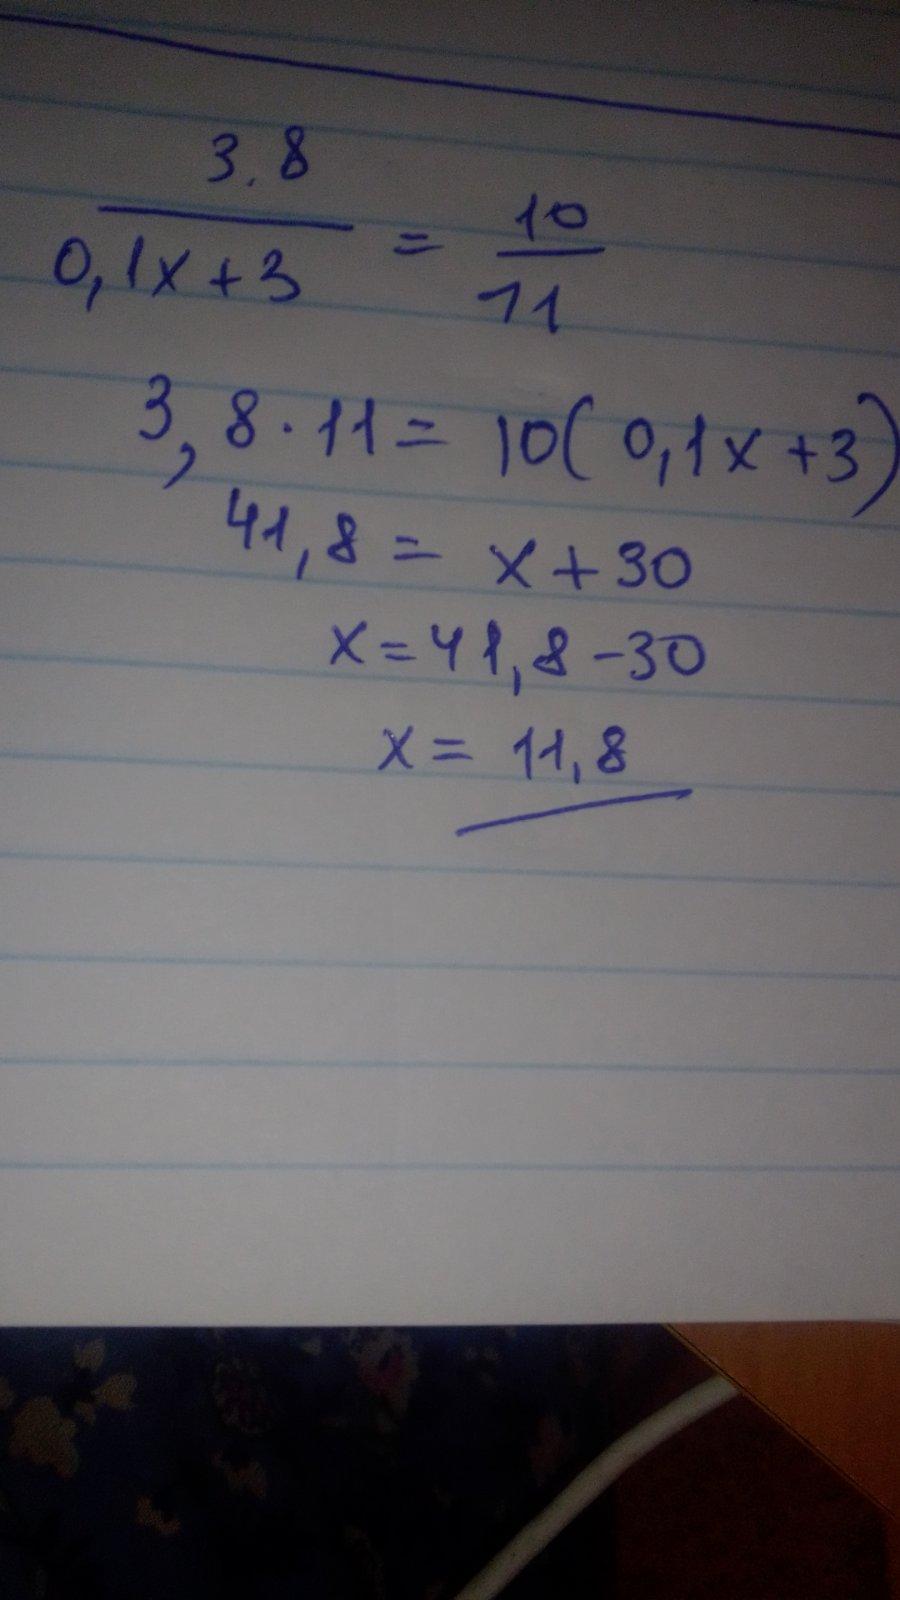 3.8
0,1x+3 = 10
11
3,8·11= 10(0,1x+3)
41,8 = x+30
x=41,8-30
x= 11,8